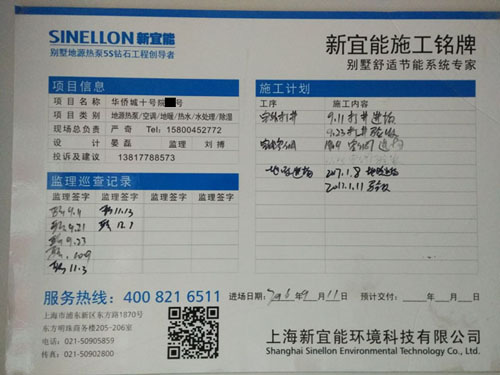 SINELLON 新宜能
别墅地源热泵5S钻石工程创导者
新宜能施工铭牌
别墅舒适节能系统专家
项目信息
项目名称 华侨城十号院 号
项目类别 地源热泵/空调/地暖/热水/水处理/除湿
现场总负责 严奇 Tel: 15800452772
设计 晏磊 监理 刘搏
投诉及建议 13817788573
监理巡查记录
监理签字 监理签字 监理签字 监理签字
9.4 11.13
9.21 12.1
9.23
10.9
11.3
施工计划
工序 施工内容
9.11 打井进场
9.23 打井验收
2017.1.8
2017.1.11 验收
服务热线: 400 821 6511
进场日期: 2016年9月11日 预计交付: 年 月 日
上海市浦东新区东方路1870号
东方明珠商务楼205-206室
电话: 021-50905859
传真: 021-50902800
上海新宜能环境科技有限公司
Shanghai Sinellon Environmental Technology Co., Ltd.